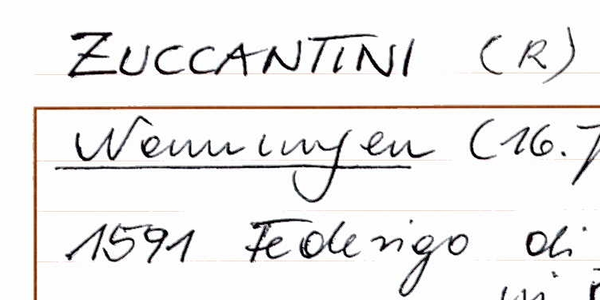 ZUCCANTINI (R)
Nennungen (16.J
1591 Federigo di
in